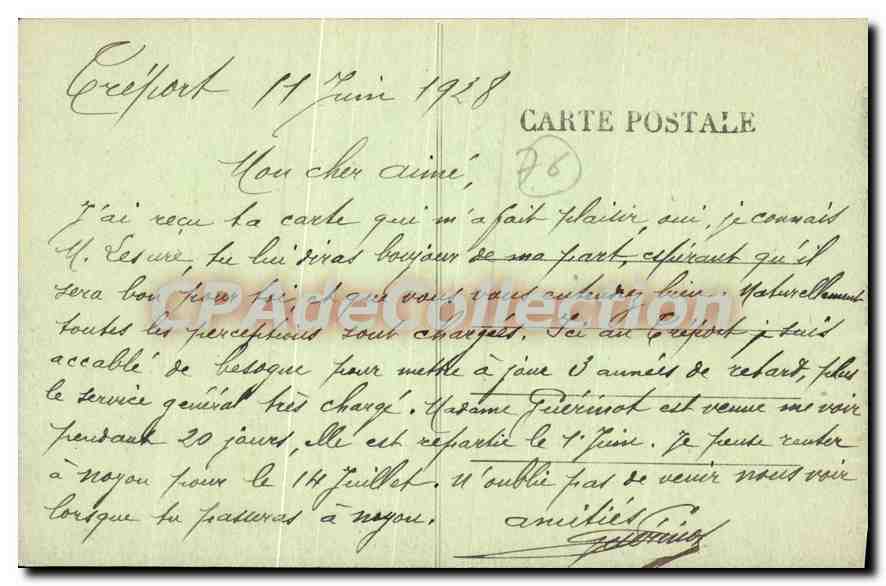 Tréport 11 Juin 1928
CARTE POSTALE
76
Mon cher aimé,
J'ai reçu ta carte qui m'a fait plaisir, oui, je connais
M. Lesuré, tu lui diras boujour de ma part, espérant qu'il
sera bon pour toi, et que vous vous entendrez bien. Naturellement
CPAdeCollection
toutes les perceptions sont chargées. Ici au Tréport je suis
accablé de besogne pour mettre à jour 3 années de retard, plus
le service général très chargé. Madame Guérinot est venue me voir
pendant 20 jours, elle est repartie le 1er Juin. Je pense rentrer
à Noyon pour le 14 Juillet. N'oublie pas de venir nous voir
lorsque tu passeras à Noyon.
amitiés
Guérinot